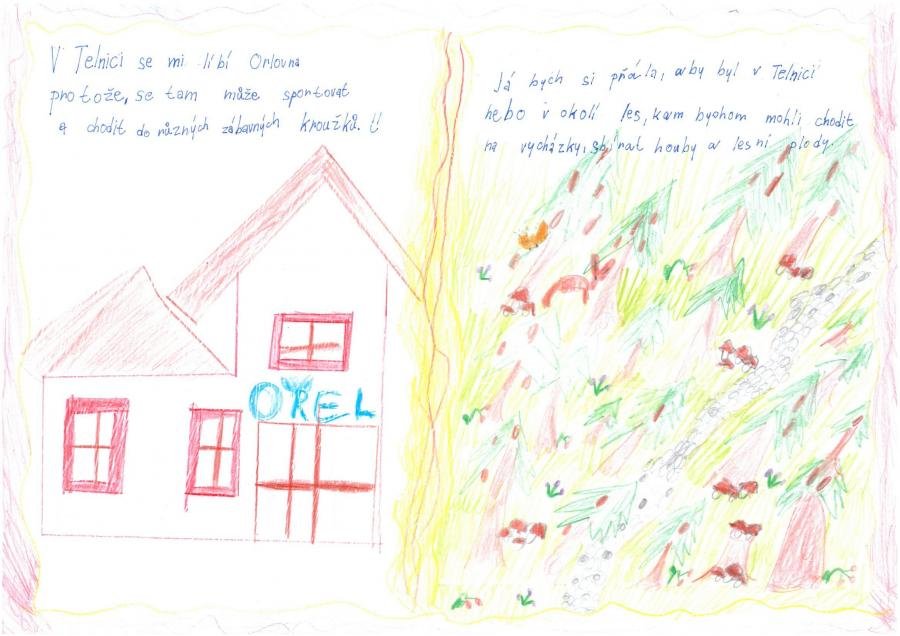 V Telnici se mi líbí Orlovna
protože, se tam může sportovat
a chodit do různých zábavných kroužků. !!
OREL
Já bych si přála, aby byl v Telnici
nebo v okolí les, kam bychom mohli chodit
na vycházky, sbírat houby a lesní plody.